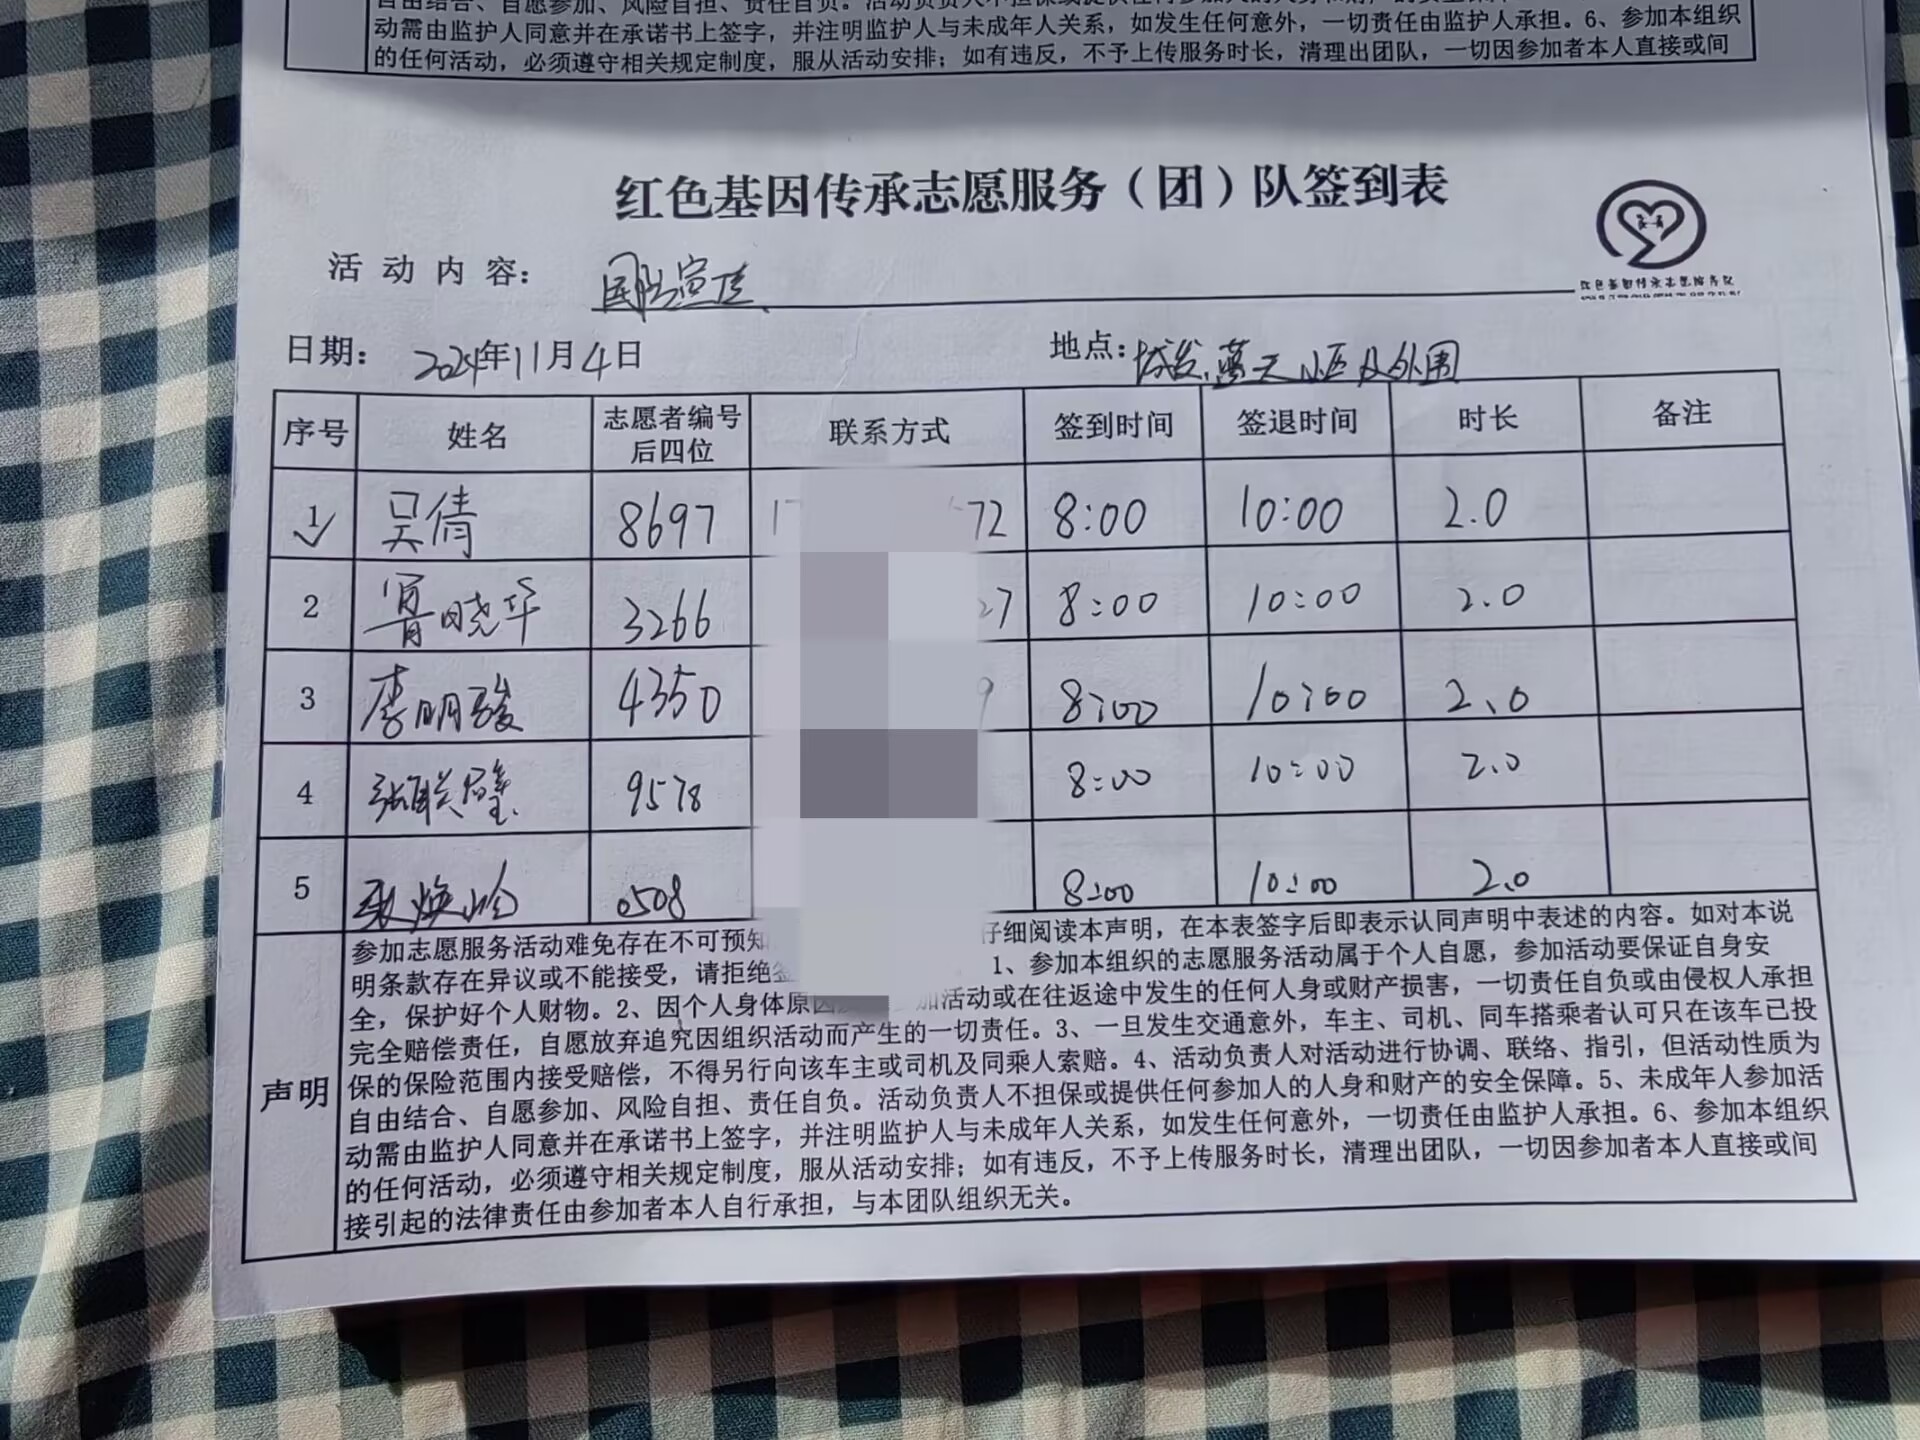 自由结合、自愿参加、风险自担、责任自负。活动负责人不担保或提供任何参加人的人身和财产的安全保障
动需由监护人同意并在承诺书上签字，并注明监护人与未成年人关系，如发生任何意外，一切责任由监护人承担。6、参加本组织
的任何活动，必须遵守相关规定制度，服从活动安排；如有违反，不予上传服务时长，清理出团队，一切因参加者本人直接或间
红色基因传承志愿服务（团）队签到表
红色基因传承志愿服务队
活动内容：
日期：2024年11月4日 地点：城发、蓝天小区及外围
序号 姓名 志愿者编号后四位 联系方式 签到时间 签退时间 时长 备注
1 吴倩 8697 17 72 8:00 10:00 2.0
2 晓华 3266 27 8:00 10:00 2.0
3 李明骏 4350 9 8:00 10:00 2.0
4 张联璧 9578 8:00 10:00 2.0
5 0508 8:00 10:00 2.0
声明
参加志愿服务活动难免存在不可预知 仔细阅读本声明，在本表签字后即表示认同声明中表述的内容。如对本说
明条款存在异议或不能接受，请拒绝签 1、参加本组织的志愿服务活动属于个人自愿，参加活动要保证自身安
全，保护好个人财物。2、因个人身体原因 参加活动或在往返途中发生的任何人身或财产损害，一切责任自负或由侵权人承担
完全赔偿责任，自愿放弃追究因组织活动而产生的一切责任。3、一旦发生交通意外，车主、司机、同车搭乘者认可只在该车已投
保的保险范围内接受赔偿，不得另行向该车主或司机及同乘人索赔。4、活动负责人对活动进行协调、联络、指引，但活动性质为
自由结合、自愿参加、风险自担、责任自负。活动负责人不担保或提供任何参加人的人身和财产的安全保障。5、未成年人参加活
动需由监护人同意并在承诺书上签字，并注明监护人与未成年人关系，如发生任何意外，一切责任由监护人承担。6、参加本组织
的任何活动，必须遵守相关规定制度，服从活动安排；如有违反，不予上传服务时长，清理出团队，一切因参加者本人直接或间
接引起的法律责任由参加者本人自行承担，与本团队组织无关。